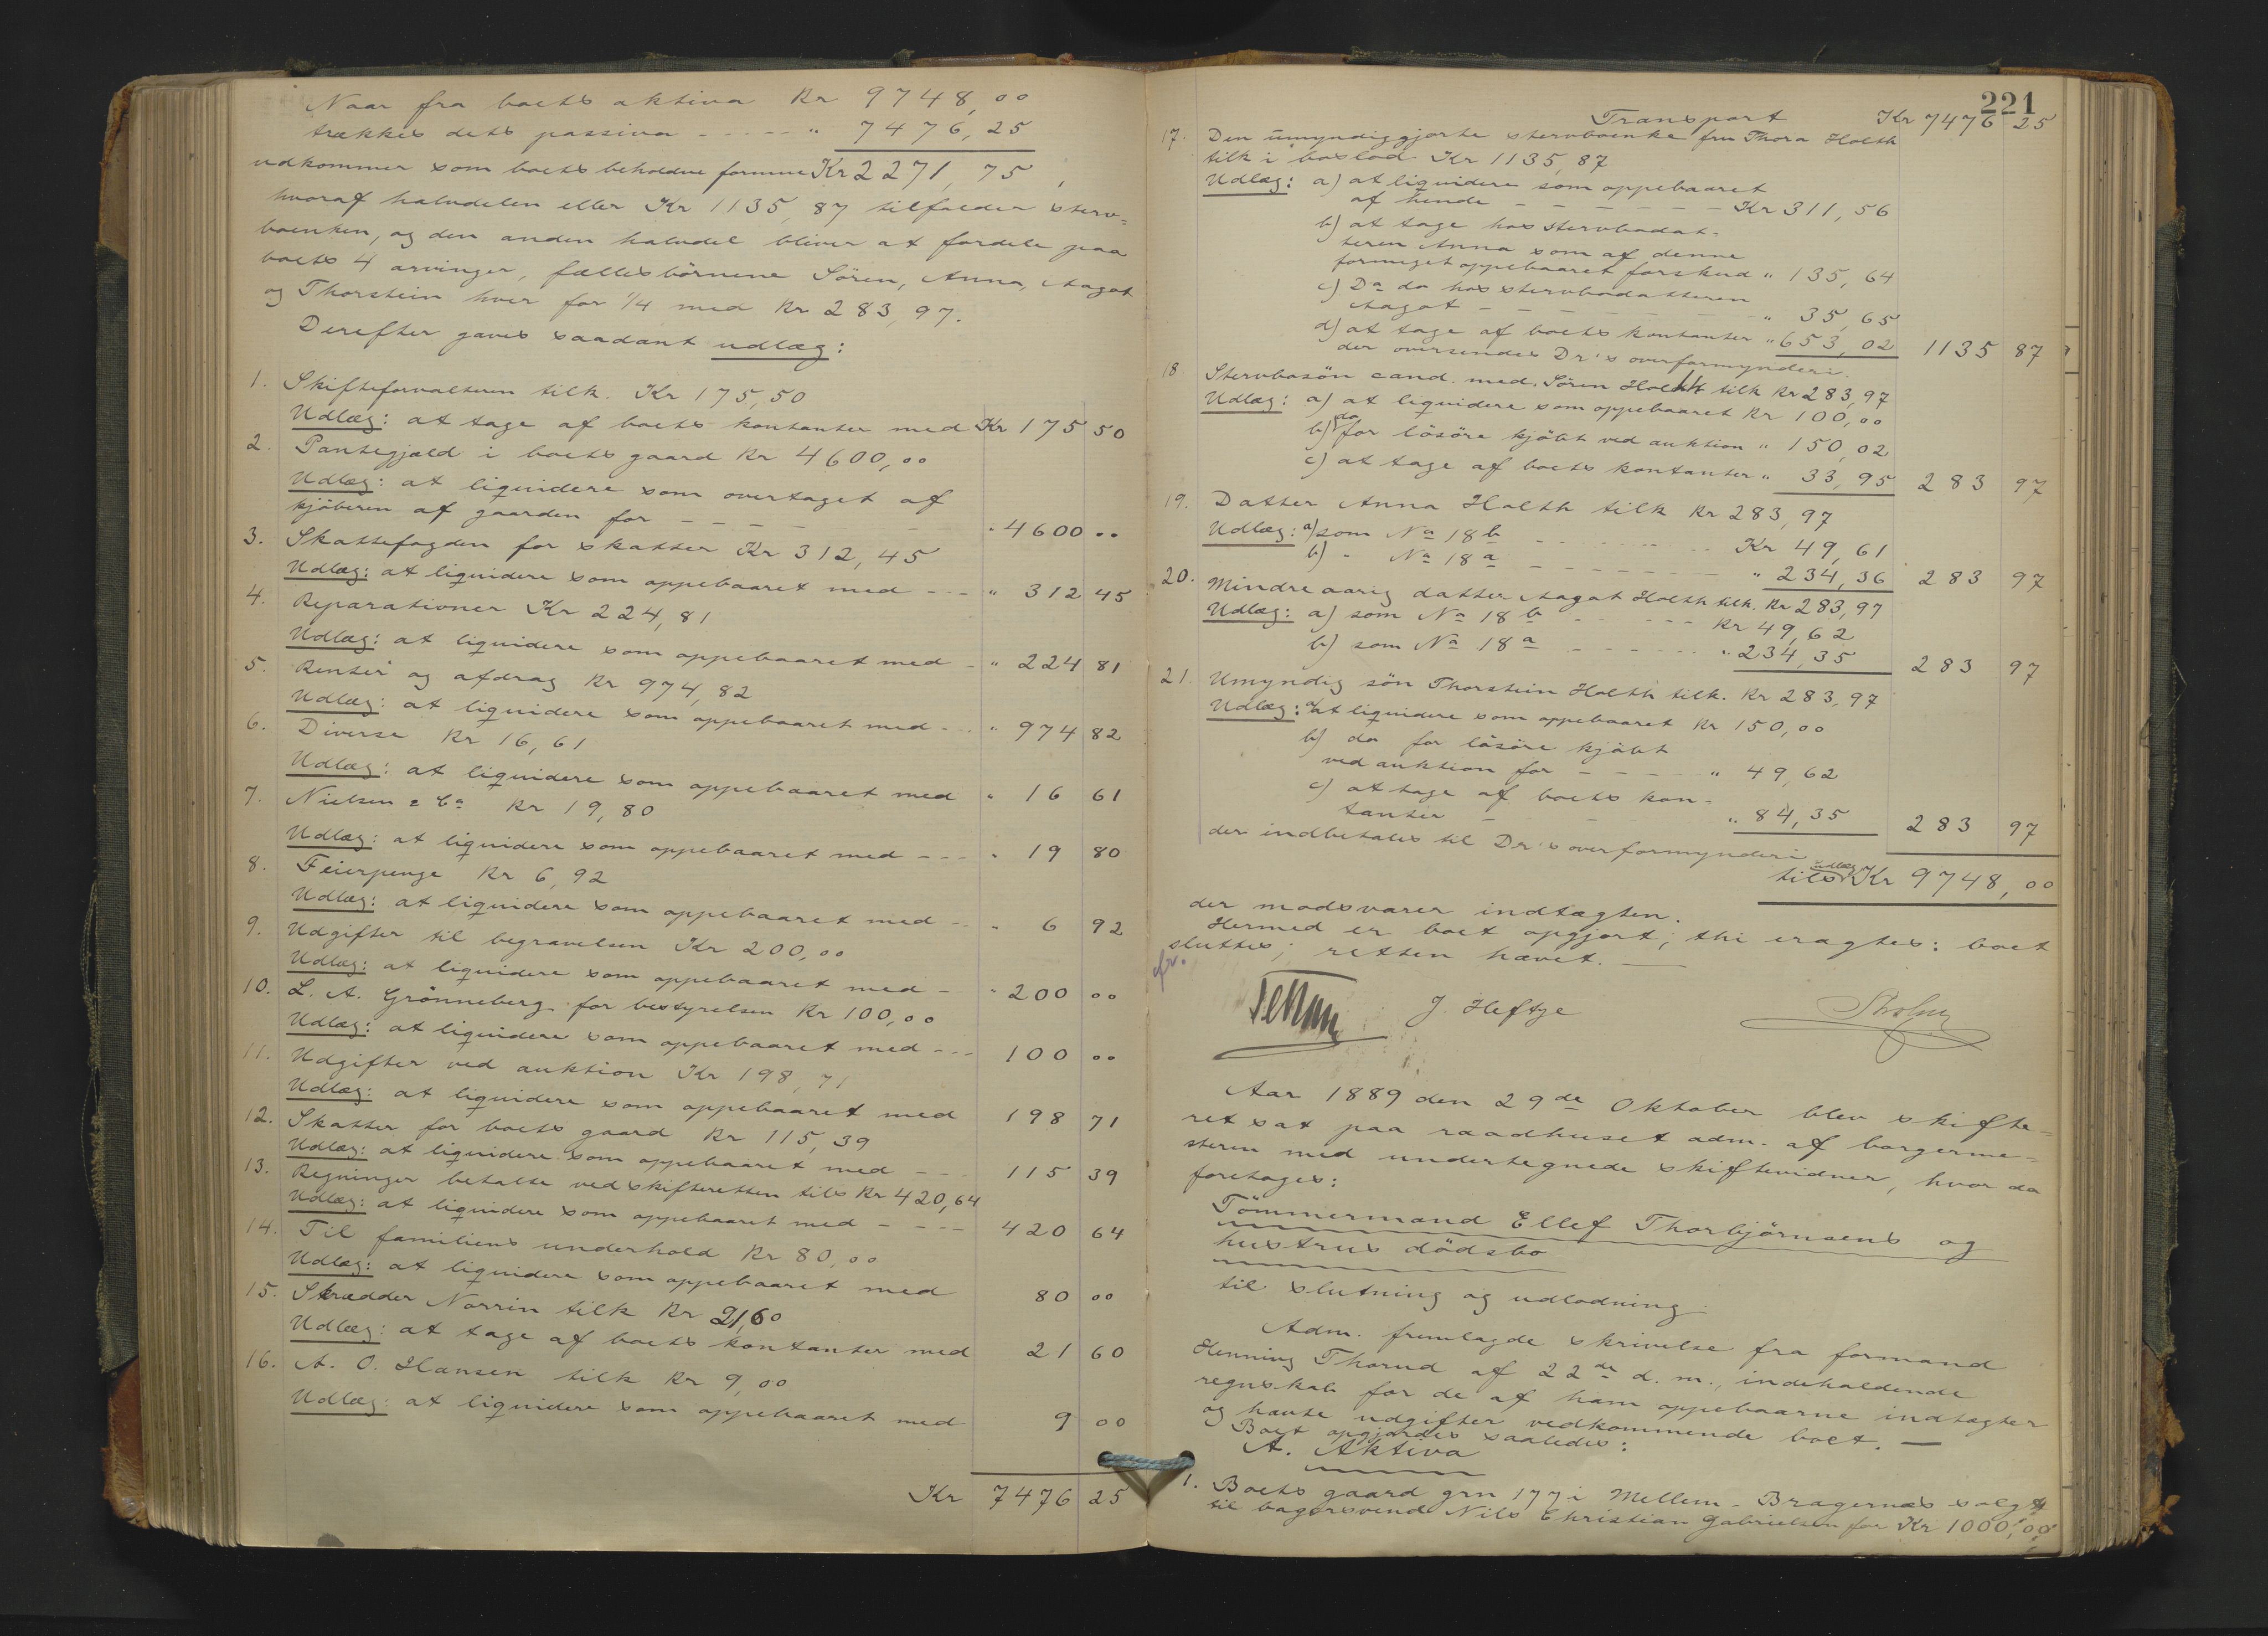 Naar fra boets aktiva Kr 9748,00
trækkes dets passiva - - - - - " 7476,25
udkommer som boets beholdne formue Kr 2271,75,
hvoraf halvdelen eller Kr 1135,87 tilfalder sterv=
boenken, og den anden halvdel bliver at fordele paa
boets 4 arvinger, fællesbörnene Sören, Anna, Aagot
og Thorstein hver for 1/4 med Kr 283,97.
Derefter gaves saadant udlæg:
1. Skifteforvalteren tilk. Kr 175,50
Udlæg: at tage af boets kontanter med Kr 175 50
2. Pantegjæld i boets gaard Kr 4600,00
Udlæg: at liqvidere som overtaget af
kjöberen af gaarden for - - - - " 4600 00
3. Skattefogden for skatter Kr 312,45
Udlæg: at liqvidere som oppebaaret med - - - " 312 45
4. Reparationer Kr 224,81
Udlæg: at liqvidere som oppebaaret med - " 224 81
5. Renter og afdrag Kr 974,82
Udlæg: at liqvidere som oppebaaret med - - " 974 82
6. Diverse Kr 16,61
Udlæg: at liqvidere som oppebaaret med " 16 61
7. Nielsen & Co Kr 19,80
Udlæg: at liqvidere som oppebaaret med - - - " 19 80
8. Feierpenge Kr 6,92
Udlæg: at liqvidere som oppebaaret med - - " 6 92
9. Udgifter til begravelsen Kr 200,00
Udlæg: at liqvidere som oppebaaret med - " 200 00
10. L. A. Grönneberg for bestyrelsen Kr 100,00
Udlæg: at liqvidere som oppebaaret med - - - 100 00
11. Udgifter ved auktion Kr 198,71
Udlæg: at liqvidere som oppebaaret med 198 71
12. Skatter for boets gaard Kr 115,39
Udlæg: at liqvidere som oppebaaret med - - 115 39
13. Regninger betalte ved skifteretten tils Kr 420,64
Udlæg: at liqvidere som oppebaaret med - - - - 420 64
14. Til familiens underhold Kr 80,00
Udlæg: at liqvidere som oppebaaret med 80 00
15. Skrædder Norrin tilk Kr 21,60
Udlæg: at tage af boets kontanter med 21 60
16. A. O. Hansen tilk Kr 9,00
Udlæg: at liqvidere som oppebaaret med 9 00
Kr 7476 25
221
Transport Kr 7476 25
17. Den umyndiggjorte stervboenke fru Thora Holth
tilk i boslod Kr 1135,87
Udlæg: a) at liqvidere som oppebaaret
af hende - - - - - - - Kr 311,56
b) at tage hos stervbodat-
teren Anna som af denne
formeget oppebaaret forskud " 135,64
c) Do do hos stervbodatteren
Aagot - - - - - - - " 35,65
d) at tage af boets kontanter " 653,02 1135 87
der oversendes Dr's overformynderi.
18. Stervbosön cand. med. Sören Holth tilk Kr 283,97
Udlæg: a) at liqvidere som oppebaaret Kr 100,00
b) do for lösöre kjöbt ved auktion " 150,02
c) at tage af boets kontanter " 33,95 283 97
19. Datter Anna Holth tilk Kr 283,97
Udlæg: a) som No 18 b - - - - - Kr 49,61
b) " No 18 a - - - - - - " 234,36 283 97
20. Mindreaarig datter Aagot Holth tilk. Kr 283,97
Udlæg: a) som No 18 b - - - - - Kr 49,62
b) som No 18 a - - - - - - " 234,35 283 97
21. Umyndig sön Thorstein Holth tilk. Kr 283,97
Udlæg: a) at liqvidere som oppebaaret Kr 150,00
b) do for lösöre kjöbt
ved auktion for - - - - " 49,62
c) at tage af boets kon-
tanter - - " 84,35 283 97
der indbetales til Dr's overformynderi
tils udlæg Kr 9748,00
der modsvarer indtægten.
Hermed er boet opgjort; thi eragtes: boet
sluttes; retten hævet. —
J. Heftye
Aar 1889 den 29de Oktober blev skifte-
ret sat paa raadhuset adm. af borgerme-
steren med undertegnede skiftevidner, hvor da
foretoges:
Tömmermand Ellef Thorbjörnsens og
hustrus dödsbo
til slutning og udlodning.
Adm. fremlagde skrivelse fra formand
Henning Thorud af 22de d. m., indeholdende
regnskab for de af ham oppebaarne indtægter
og havte udgifter vedkommende boet. —
Boet opgjordes saaledes:
A. Aktiva
1. Boets gaard grn 177 i Mellem-Bragernæs solgt
til bagersvend Nils Christian Gabrielsen for Kr 1000,00